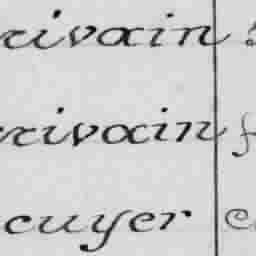 rivain
rivain
cuyer